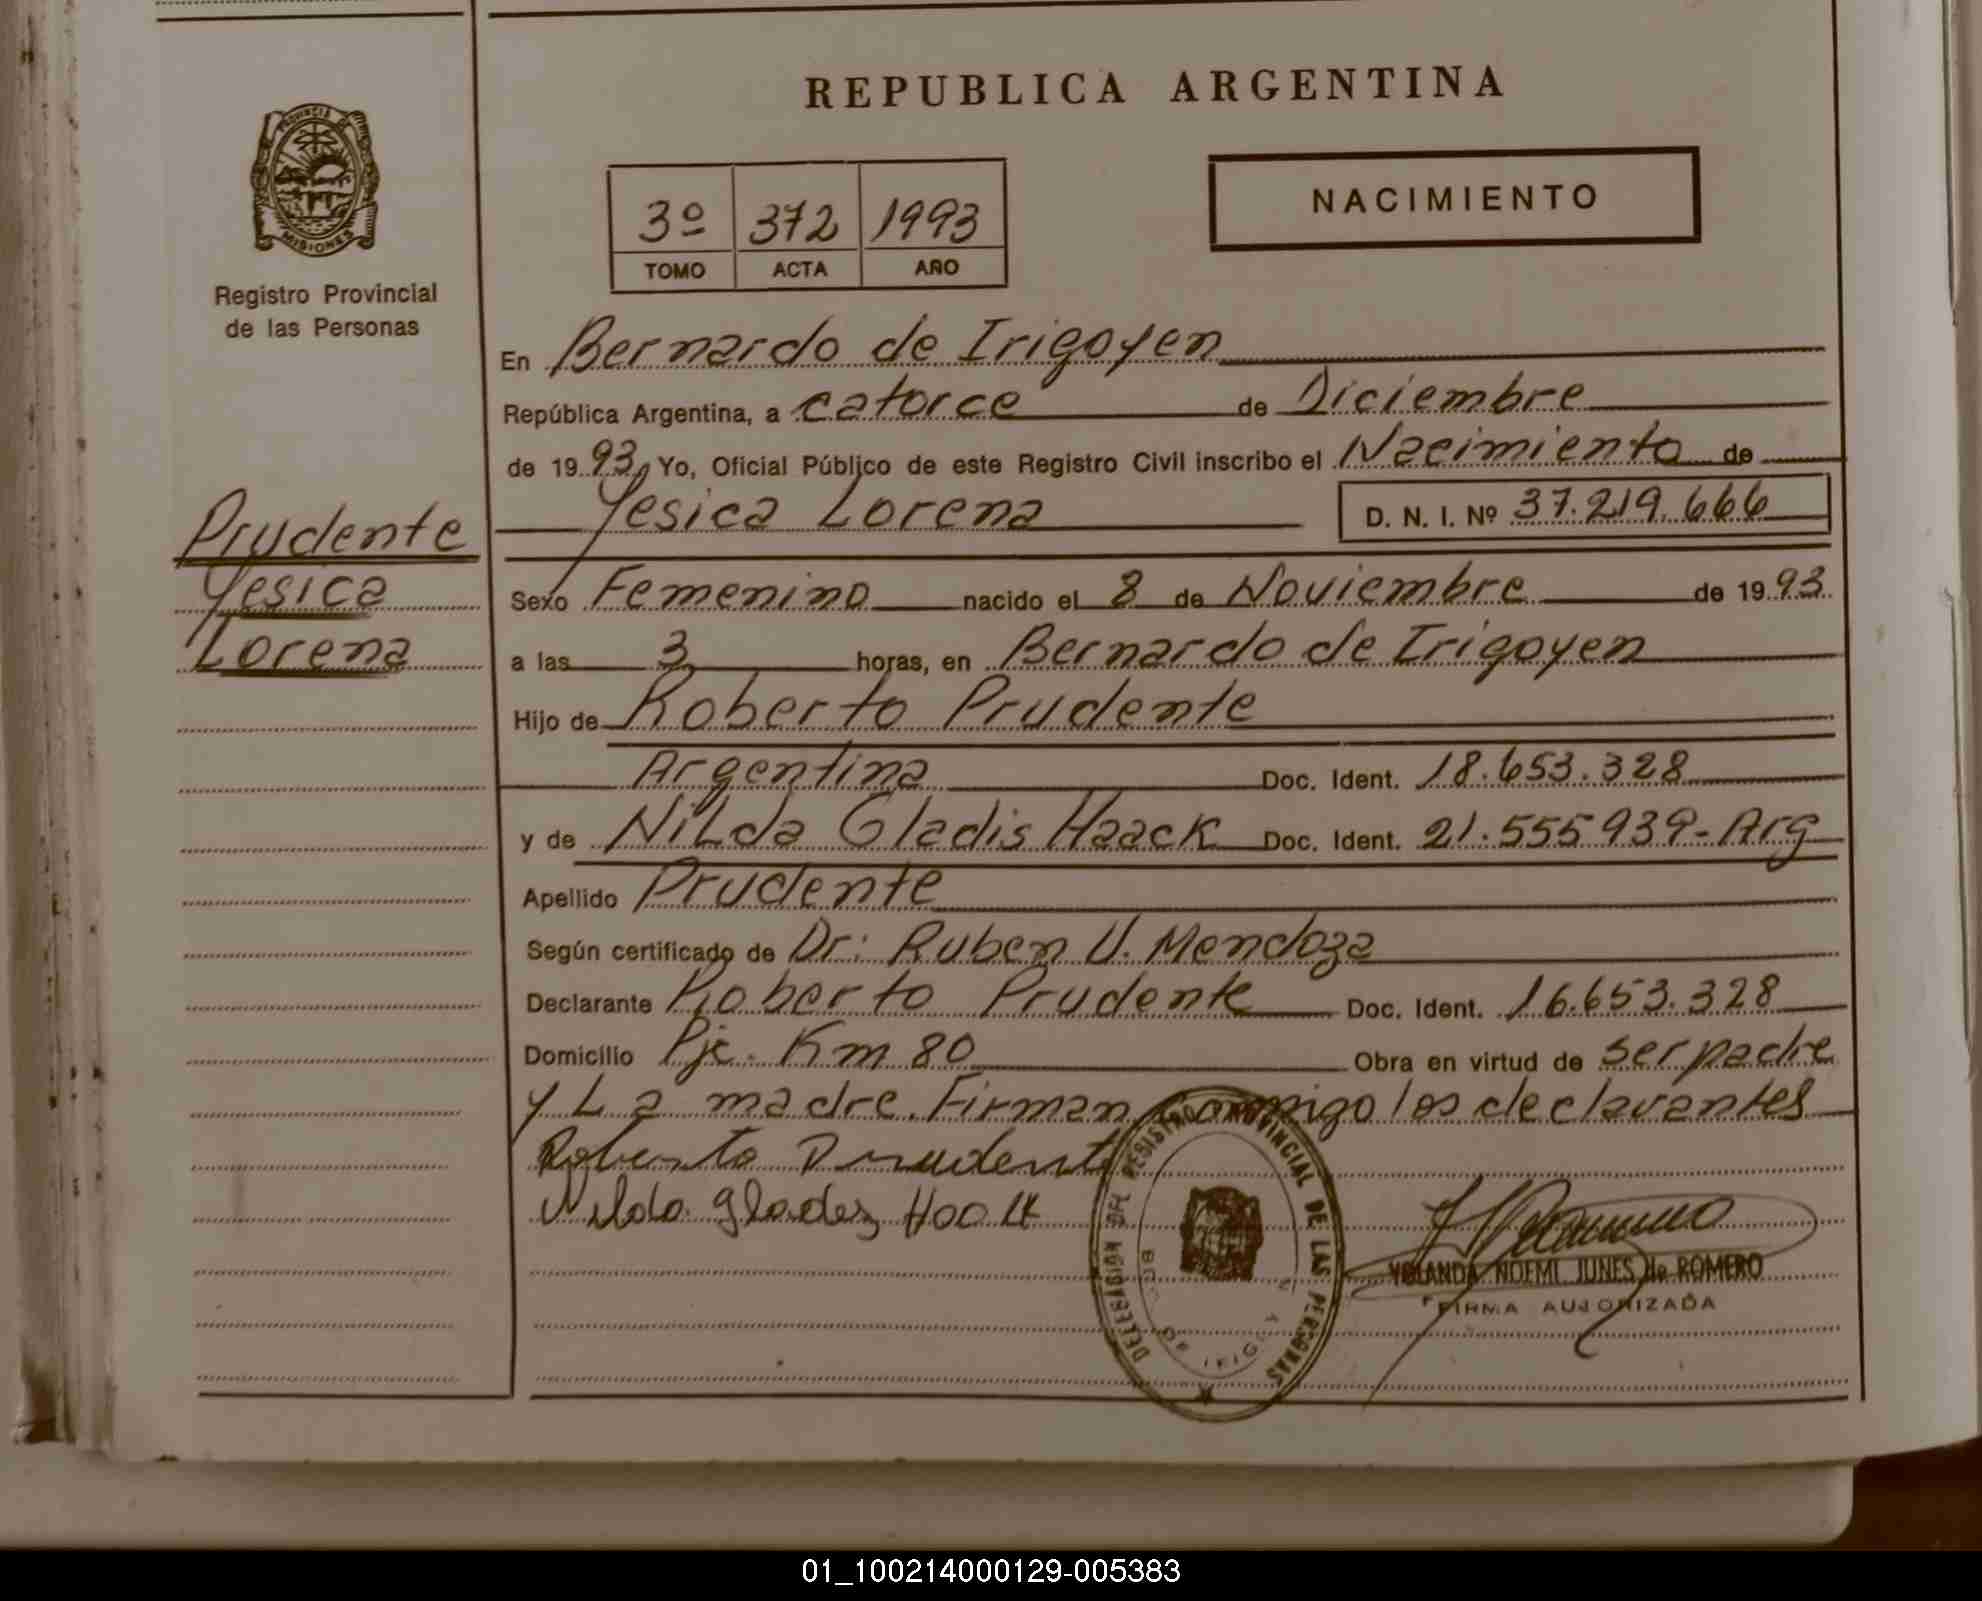 REPUBLICA ARGENTINA
PROVINCIA DE
MISIONES
Registro Provincial
de las Personas
3º 372 1993
TOMO ACTA AÑO
NACIMIENTO
En Bernardo de Irigoyen
República Argentina, a catorce de Diciembre
de 1993 Yo, Oficial Público de este Registro Civil inscribo el Nacimiento de
Yesica Lorena D. N. I. Nº 37.219.666
Prudente
Yesica
Lorena
Sexo Femenino nacido el 8 de Noviembre de 1993
a las 3 horas, en Bernardo de Irigoyen
Hijo de Roberto Prudente
Argentina Doc. Ident. 18.653.328
y de Nilda Gladis Haack Doc. Ident. 21.555939-Arg
Apellido Prudente
Según certificado de Dr: Ruben U. Mendoza
Declarante Roberto Prudente Doc. Ident. 16.653.328
Domicilio Pje. Km 80 Obra en virtud de ser padre
y La madre. Firman conmigo los declarantes
Roberto Prudente
Nilda Glades
DELEGACION DEL REGISTRO PROVINCIAL DE LAS PERSONAS
YOLANDA NOEMI JUNES de ROMERO
FIRMA AUTORIZADA
01_100214000129-005383